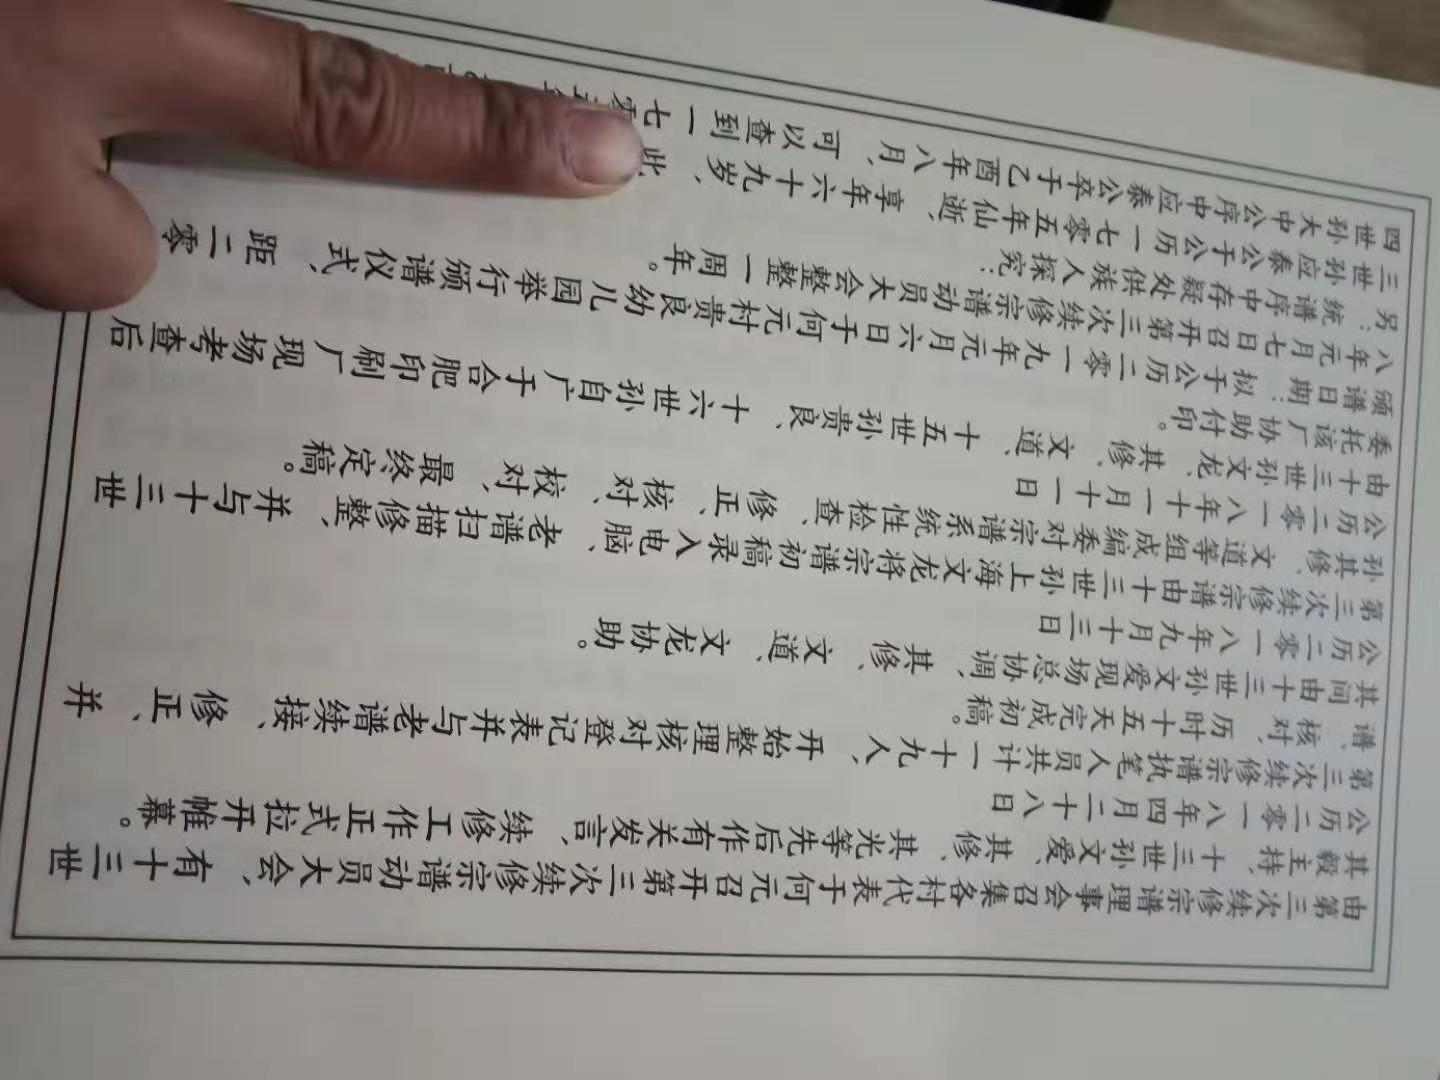 由第三次续修宗谱理事会召集各村代表于何元召开第三次续修宗谱动员大会、有十三世
其毅主持、十三世孙文爱、其修、其光等先后作有关发言、续修工作正式拉开帷幕。
公历二零一八年四月二十八日
第三次续修宗谱执笔人员共计一十九人、开始整理核对登记表并与老谱续接、修正、并
谱、核对、历时十五天完成初稿。
其间由十三世孙文爱现场总协调、其修、文道、文龙协助。
公历二零一八年九月十三日
第三次续修宗谱由十三世孙上海文龙将宗谱初稿录入电脑、老谱扫描修整、并与十三世
孙其修、文道等组成编委对宗谱系统性检查、修正、核对、校对、最终定稿。
公历二零一八年十一月十一日
由十三世孙文龙、其修、文道、十五世孙贵良、十六世孙自广于合肥印刷厂现场考查后
委托该厂协助付印。
颁谱日期：拟于公历二零一九年元月六日于何元村贵良幼儿园举行颁谱仪式、距二零
八年元月七日召开第三次续修宗谱动员大会整整一周年。
另：统谱序中存疑处供族人探究：
三世孙应泰公于公历一七零五年仙逝、享年六十九岁、此
四世孙大中公序中应泰公卒于乙酉年八月、可以查到一七零